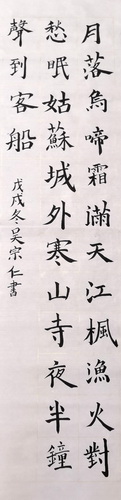 月落烏啼霜滿天江楓漁火對
愁眠姑蘇城外寒山寺夜半鐘
聲到客船
戊戌冬吴宗仁書